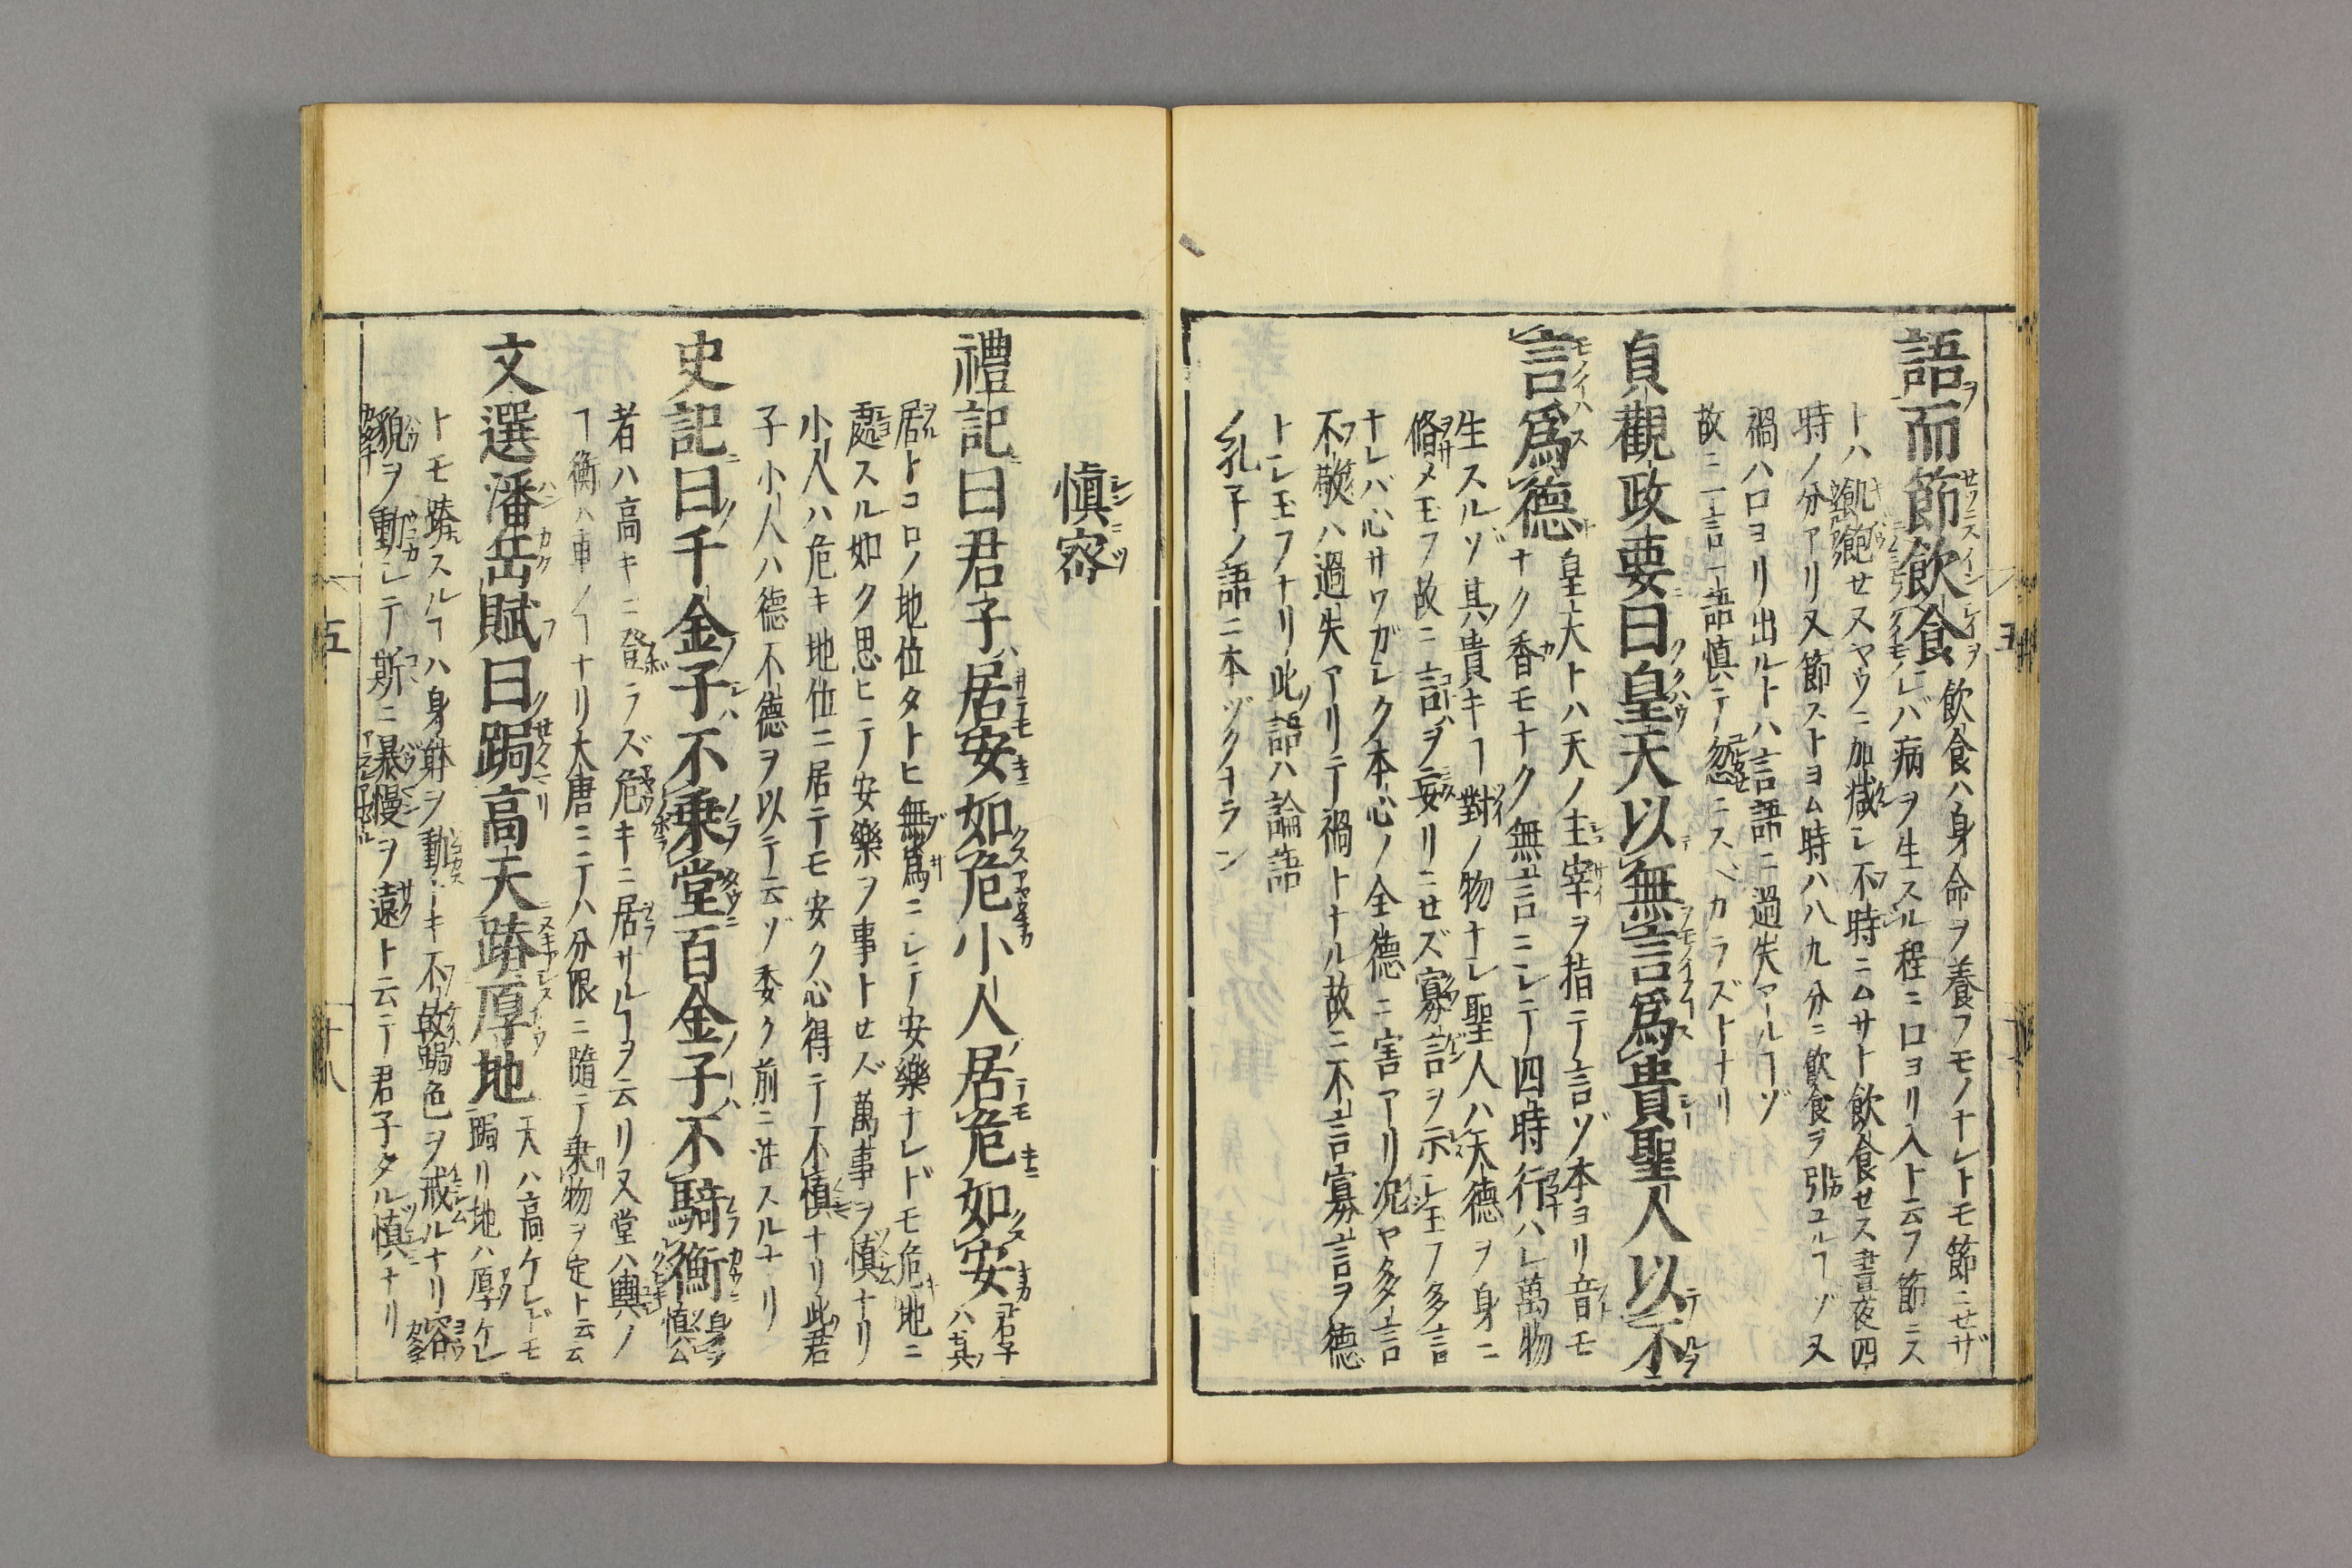 語而節飲食 飲食ハ身命ヲ養フモノナレトモ節ニセザ
レバ病ヲ生スル程ニ口ヨリ入ト云フ節ニス
トハ飢飽セスヤウニ加減シ不時ニムサト飲食セス晝夜四
時ノ分アリ又節ストヨム時ハ八九分ニ飲食ヲ引ユルヿゾ又
禍ハ口ヨリ出ルトハ言語ニ過失アルヿゾ
故ニ一言一語慎テ忽ニスベカラズトナリ
貞觀政要曰皇天以無言爲貴聖人以不
言爲德 皇天トハ天ノ主宰ヲ指テ言ゾ本ヨリ音モ
ナク香モナク無言ニシテ四時行ハレ萬物
生スルゾ其貴キヿ對ノ物ナシ聖人ハ天德ヲ身ニ
脩メ玉フ故ニ言ヲ妄リニセズ寡言ヲ示シ玉フ多言
ナレバ心サワガシク本心ノ全德ニ害アリ况ヤ多言
不敬ハ過失アリテ禍トナル故ニ不言寡言ヲ德
トシ玉フナリ此語ハ論語
ノ孔子ノ語ニ本ヅクナラン
慎密
禮記曰君子居安如危小人居危如安 君子
ハ其
居トコロノ地位タトヒ無爲ニシテ安樂ナレドモ危地ニ
處スル如ク思ヒテ安樂ヲ事トセズ萬事ヲ慎ナリ
小人ハ危キ地位ニ居テモ安ク心得テ不慎ナリ此君
子小人ハ德不德ヲ以テ云ゾ委ク前ニ注スルナリ
史記曰千金子不乗堂百金子不騎衡 身ヲ
慎ム
者ハ高キニ登ラズ危キニ居サルヿヲ云リ又堂ハ輿ノ
ヿ衡ハ車ノヿナリ大唐ニテハ分限ニ隨テ乗物ヲ定ト云云
文選潘岳賦曰跼高天蹐厚地 天ハ高ケレドモ
跼リ地ハ厚ケレ
トモ蹐スルヿハ身躰ヲ動キ不敬ノ色ヲ戒ルナリ容
貌ヲ動シテ斯ニ暴慢ヲ遠ト云テ君子タル慎ナリ
五
十八